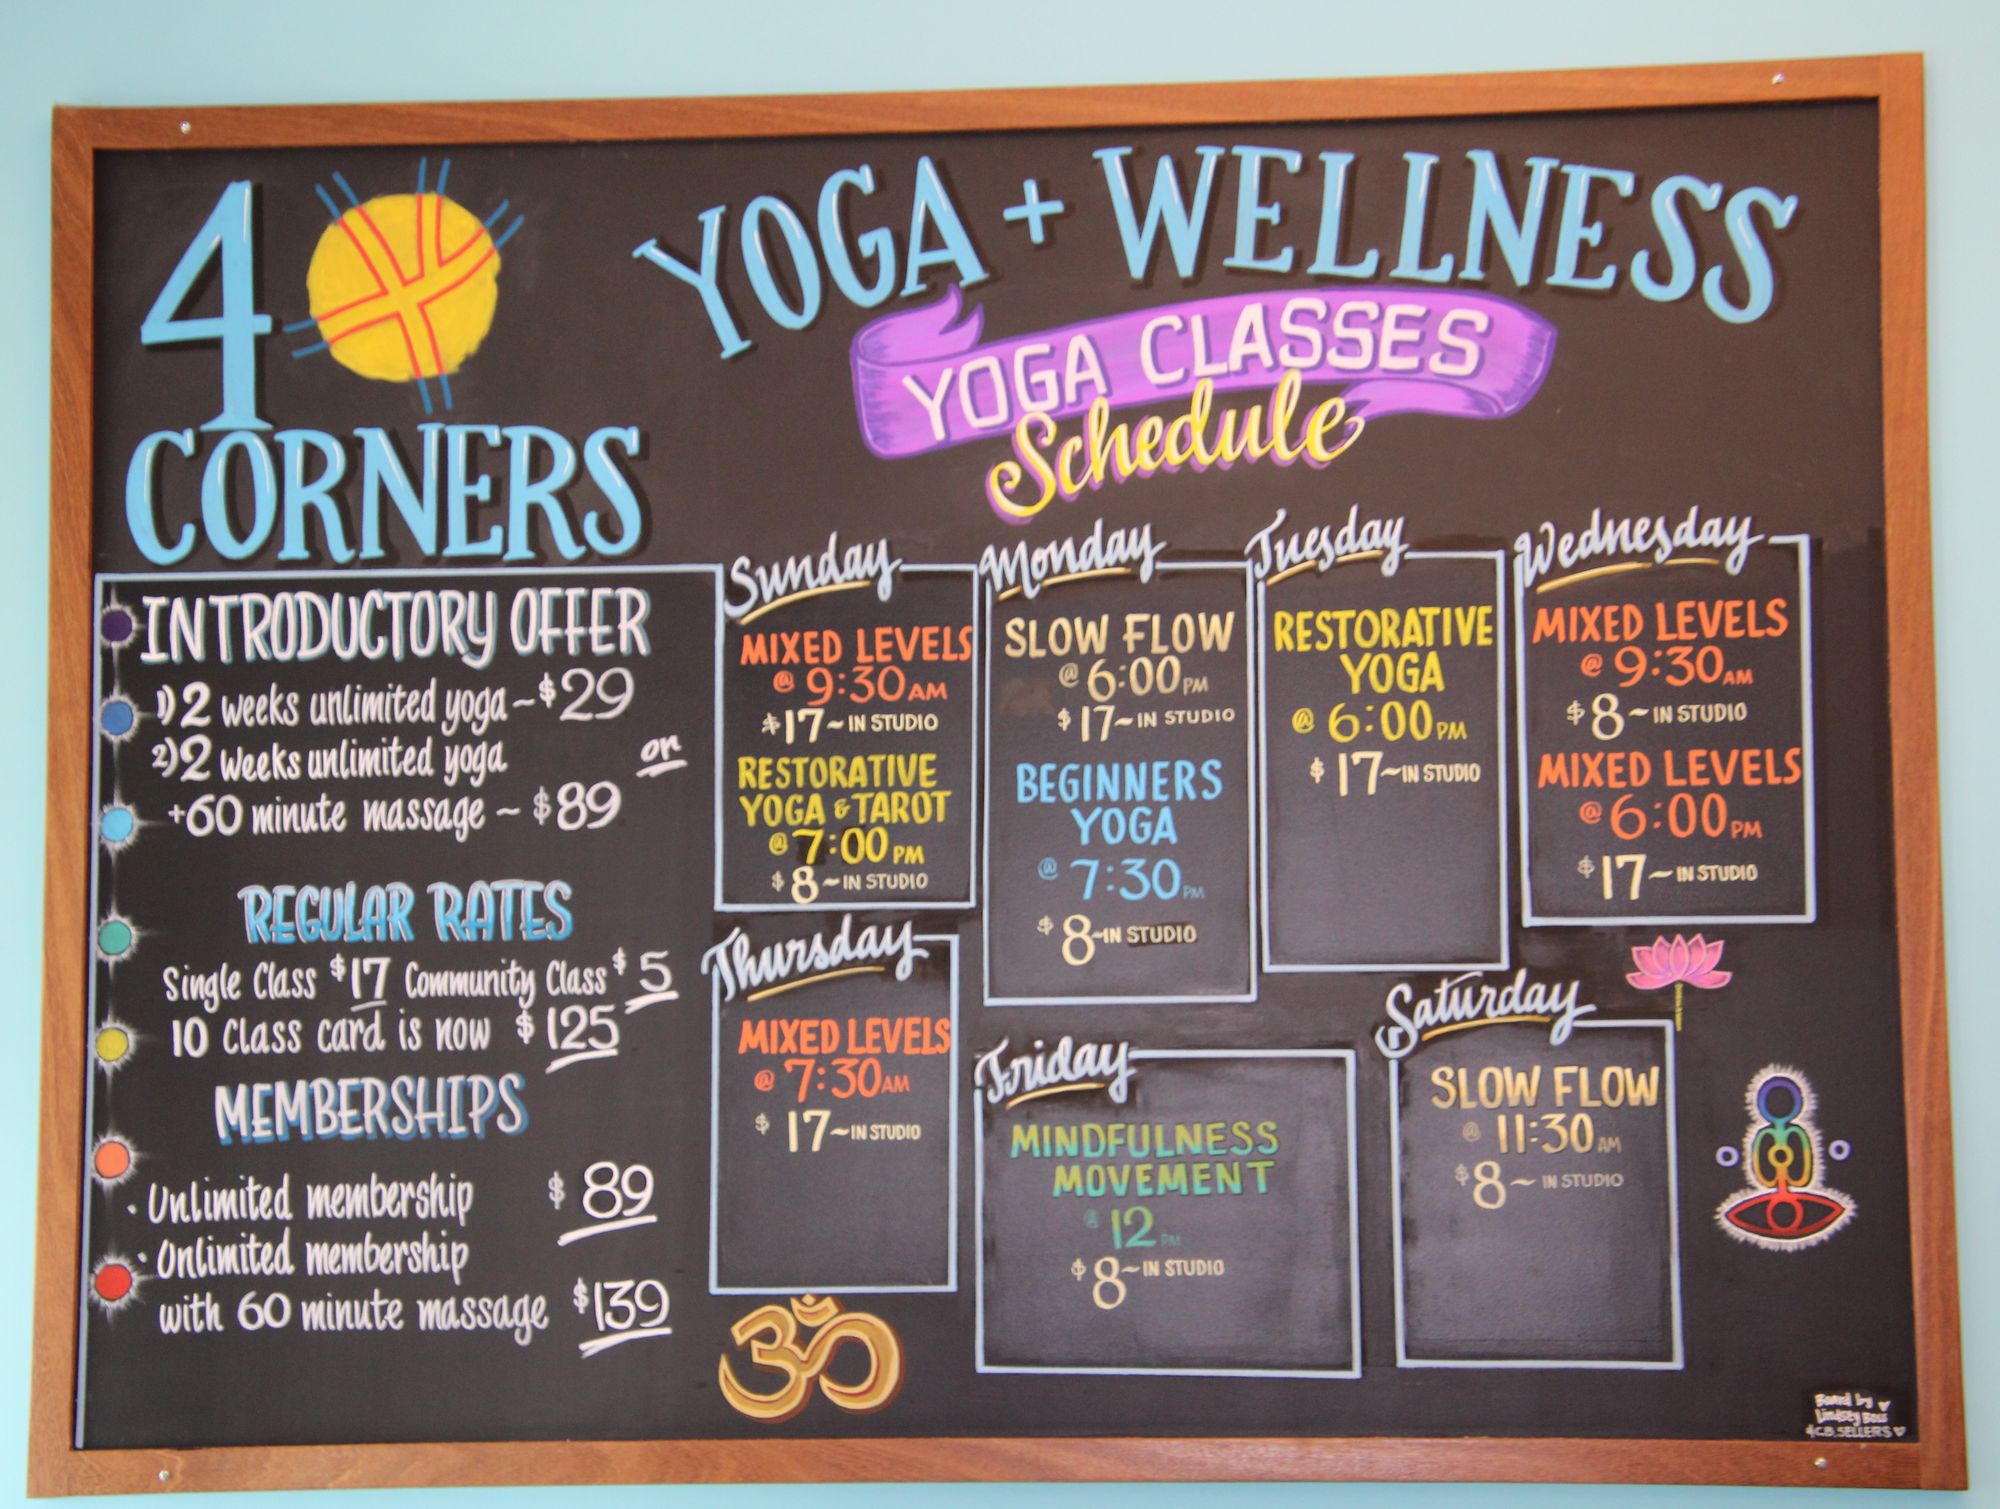 4
CORNERS
YOGA + WELLNESS
YOGA CLASSES
Schedule
INTRODUCTORY OFFER
1) 2 weeks unlimited yoga ~ $29
or
2) 2 weeks unlimited yoga
+60 minute massage ~ $89
REGULAR RATES
Single Class $17 Community Class $5
10 Class card is now $125
MEMBERSHIPS
• Unlimited membership $89
• Unlimited membership
with 60 minute massage $139
Sunday
MIXED LEVELS
@ 9:30 AM
$17 ~ IN STUDIO
RESTORATIVE
YOGA & TAROT
@ 7:00 PM
$8 ~ IN STUDIO
Monday
SLOW FLOW
@ 6:00 PM
$17 ~ IN STUDIO
BEGINNERS
YOGA
@ 7:30 PM
$8 ~ IN STUDIO
Tuesday
RESTORATIVE
YOGA
@ 6:00 PM
$17 ~ IN STUDIO
Wednesday
MIXED LEVELS
@ 9:30 AM
$8 ~ IN STUDIO
MIXED LEVELS
@ 6:00 PM
$17 ~ IN STUDIO
Thursday
MIXED LEVELS
@ 7:30 AM
$17 ~ IN STUDIO
Friday
MINDFULNESS
MOVEMENT
@ 12 PM
$8 ~ IN STUDIO
Saturday
SLOW FLOW
@ 11:30 AM
$8 ~ IN STUDIO
ॐ
Board by
Lindsey Bess
SELLERS